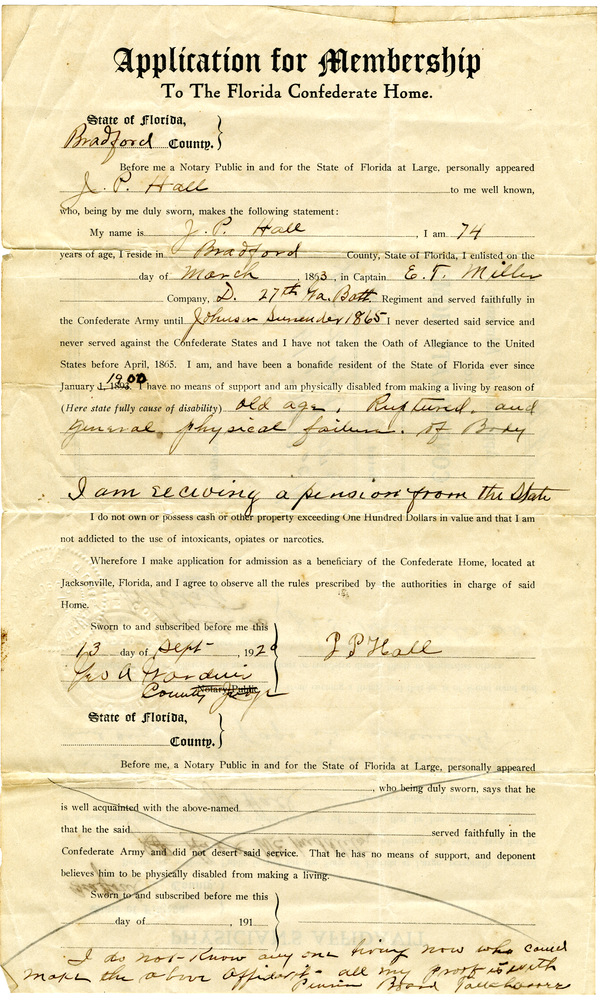 Application for Membership
To The Florida Confederate Home.
State of Florida,
Bradford County.
Before me a Notary Public in and for the State of Florida at Large, personally appeared
J. P. Hall to me well known,
who, being by me duly sworn, makes the following statement:
My name is J. P. Hall, I am 74
years of age, I reside in Bradford County, State of Florida, I enlisted on the
day of March, 1863, in Captain E. T. Miller
Company, D. 27th Ga. Batt. Regiment and served faithfully in
the Confederate Army until Johnson Surrender 1865 I never deserted said service and
never served against the Confederate States and I have not taken the Oath of Allegiance to the United
States before April, 1865. I am, and have been a bonafide resident of the State of Florida ever since
January 1, 1895. 1900 I have no means of support and am physically disabled from making a living by reason of
(Here state fully cause of disability) old age, Ruptured, and
general physical failure. of Body
I am receiving a pension from the State
I do not own or possess cash or other property exceeding One Hundred Dollars in value and that I am
not addicted to the use of intoxicants, opiates or narcotics.
Wherefore I make application for admission as a beneficiary of the Confederate Home, located at
Jacksonville, Florida, and I agree to observe all the rules prescribed by the authorities in charge of said
Home.
Sworn to and subscribed before me this
13 day of Sept, 1920
J P Hall
Geo A
Notary Public County Judge
State of Florida,
County.
Before me, a Notary Public in and for the State of Florida at Large, personally appeared
, who being duly sworn, says that he
is well acquainted with the above-named
that he the said served faithfully in the
Confederate Army and did not desert said service. That he has no means of support, and deponent
believes him to be physically disabled from making a living.
Sworn to and subscribed before me this
day of 191
I do not know any one living now who could
make the above affidavit - all my proof is with
Pension Board Tallahassee